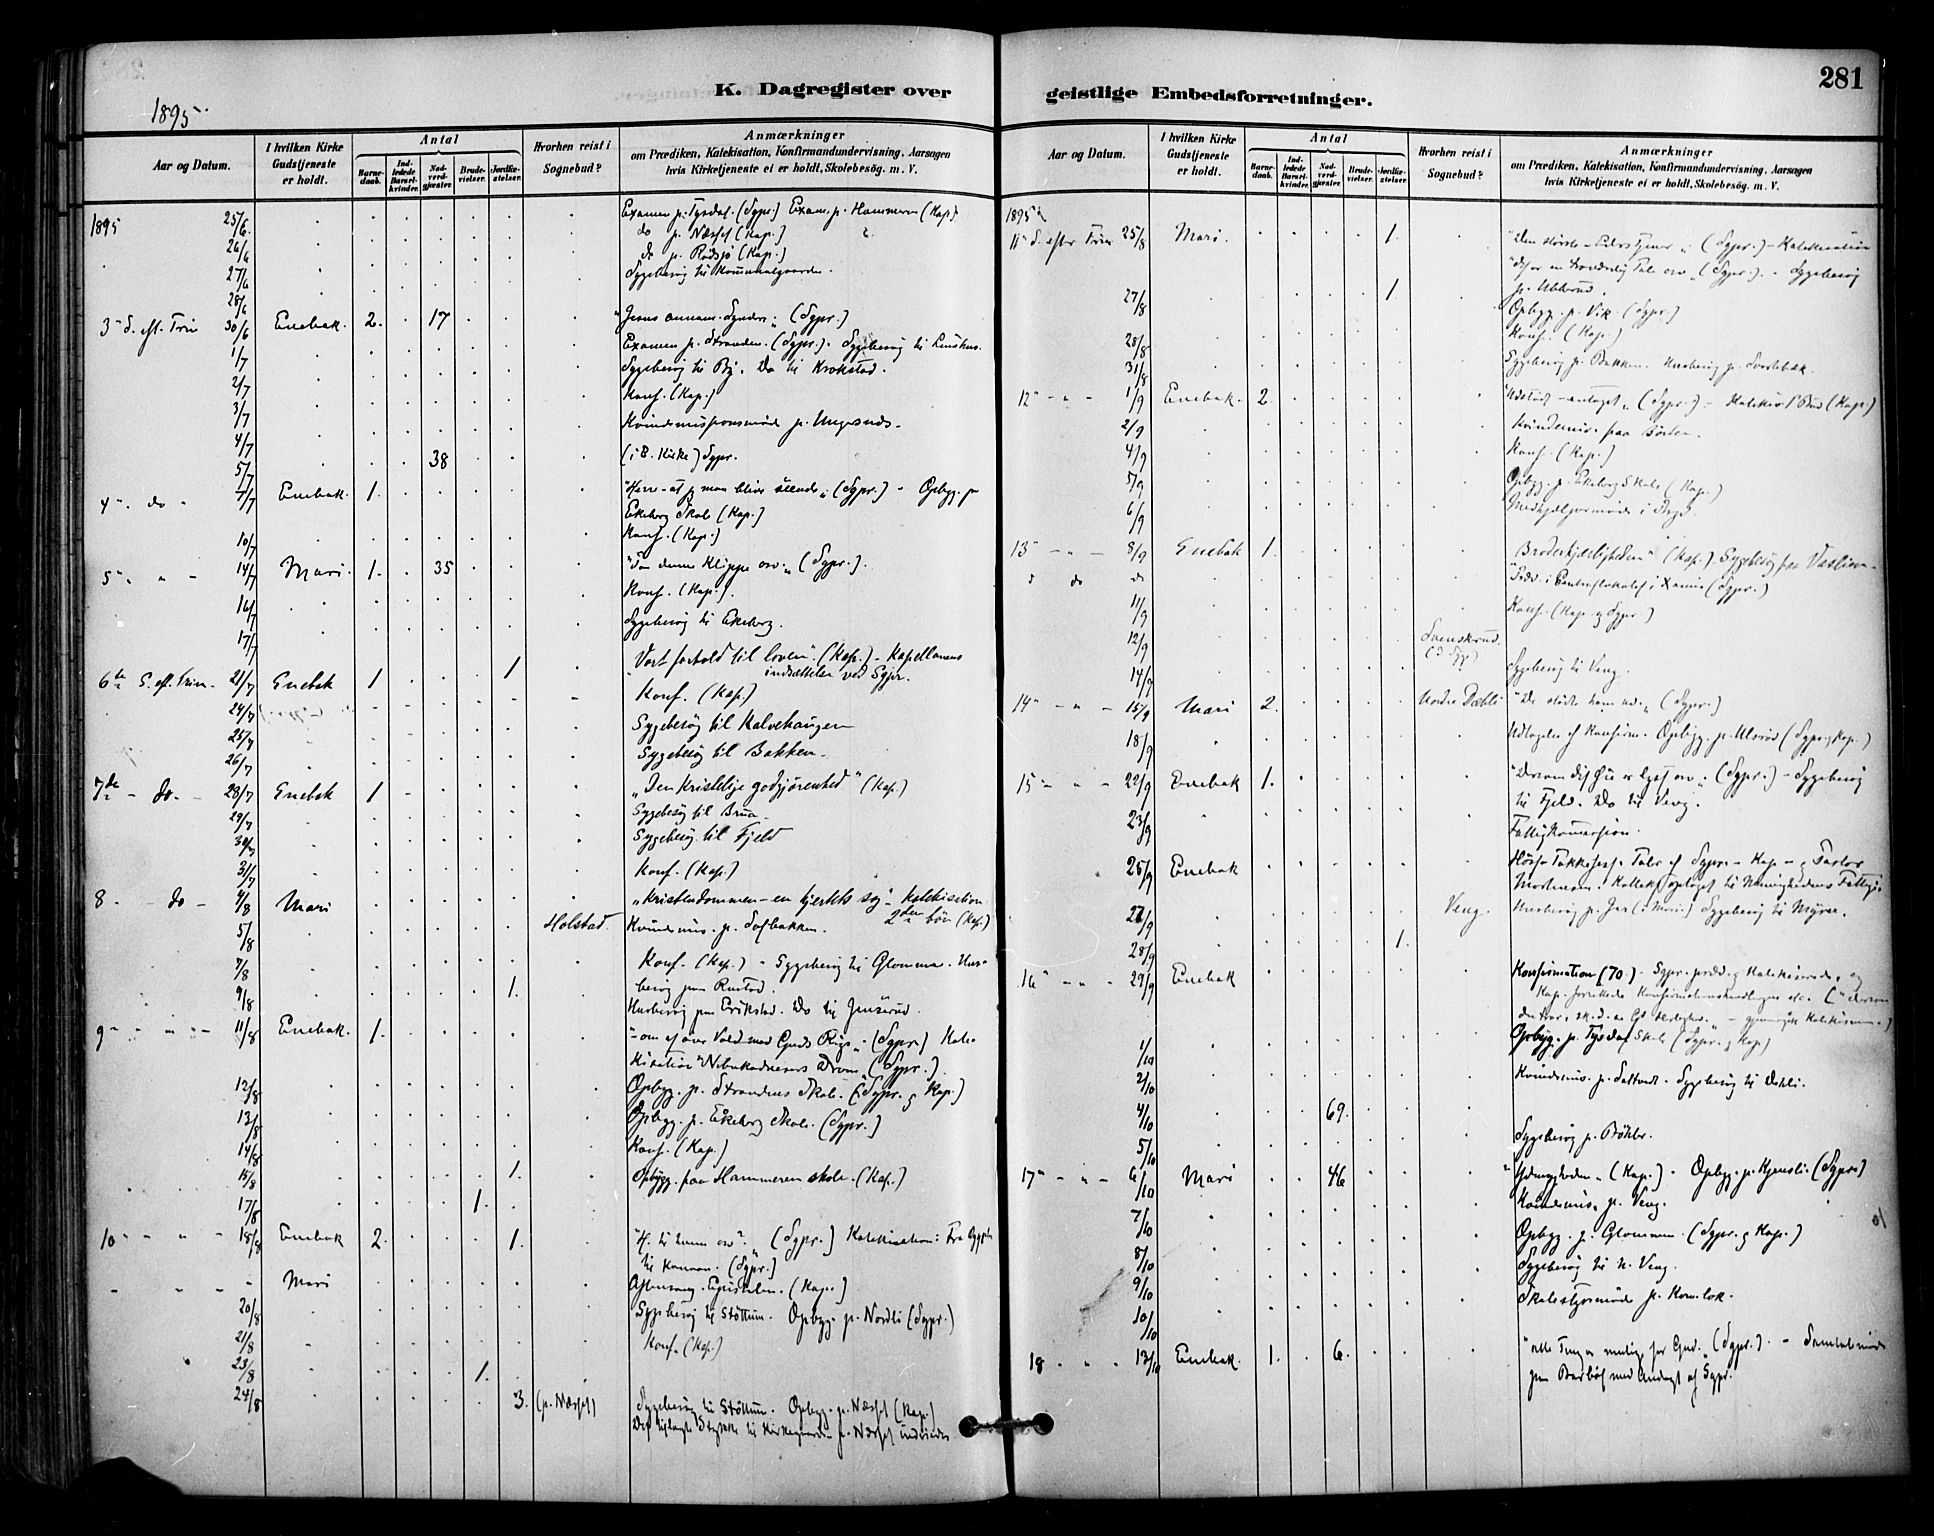 281
K. Dagregister over geistlige Embedsforretninger.
1895
Aar og Datum.
I hvilken Kirke Gudstjeneste er holdt.
Antal
Barnedaab.
Indledede Barselkvinder.
Nadverdgjester.
Brudevielser.
Jordfæstelser.
Hvorhen reist i Sognebud?
Anmærkninger
om Prædiken, Katekisation, Konfirmandundervisning, Aarsagen
hvis Kirketjeneste ei er holdt, Skolebesög. m. V.
1895 25/6 Examen p. Tysdal. (Sgpr.) Exam. p. Hammeren (Kap.)
26/6 do p. Næsset (Kap.)
27/6 do p. Rødsjø (Kap.)
28/6 Sygebesøg til Kommunalgaarden.
3 S. ef. Trin 30/6 Enebak. 2. 17 "Jesus annam. Syndere" (Sgpr.)
1/7 Examen p. Stranden. (Sgpr.). Sygebesøg til
2/7 Sygebesøg til By. Do til Krokstad.
3/7 Konf. (Kap.)
4/7 Kvindemissionsmøde p.
5/7 38 (i E. Kirke) Sgpr.
4 do 7/7 Enebak. 1. "Herre - at jeg maa blive seende" (Sgpr.) - Opbyg. p.
Ekeberg Skole (Kap.)
10/7 Konf. (Kap.)
5 " 14/7 Mari. 1. 35 "Paa denne Klippe osv." (Sgpr.).
16/7 Konf. (Kap.).
17/7 Sygebesøg til Ekeberg.
6te S. ef. Trin. 21/7 Enebak 1 1 "Vort forhold til loven" (Kap.) - Kapellanens
indsættelse ved Sgpr.
24/7 Konf. (Kap.)
25/7 Sygebesøg til Kalvehaugen
26/7 Sygebesøg til Bakken
7de - do - 28/7 Enebak 1 "Den kristelige godgjørenhed" (Kap.)
29/7 Sygebesøg til Brua
30/7 Sygebesøg til Fjeld
31/7 Konf. (Kap.)
8 - do - 4/8 Mari "Kristendommen - en hjertets sag" - Katekisation
2den bøn (Kap.)
5/8 Holstad. Kvindemis. p. Tofbakken.
7/8 Konf. (Kap.) - Sygebesøg til Glomma. Hus-
9/8 1. besøg paa Rustad.
Husbesøg paa Erikstad. Do til
9 " 11/8 Enebak. 1. "- om af øve Vold mod Guds Rige" - (Sgpr.) Kate-
kisation "Nebukadnesars Drøm" (Sgpr.).
12/8 Opbyg. p. Strandens Skole. (Sgpr. og Kap.)
13/8 Opbyg. p. Ekeberg Skole. (Sgpr.)
14/8 Konf. (Kap.)
15/8 1. Opbygg. paa Hammeren skole. (Kap.)
17/8 1.
10 " 18/8 Enebak 2. 1. (Sgpr.) Katekisation: Fra Ægypten
til Kanaan. (Sgpr.)
- Mari Aftensang. Epistelen. (Kap.)
20/8 Sygebesøg til Støttum. Opbyg. p. Nordli (Sgpr.)
21/8 Konf. (Kap.)
23/8 1.
24/8 3. (p. Næsset) Sygebesøg til Støttum. Opbyg. p. Næsset (Kap.)
Det tillagte Stykke til Kirkegaarden p. Næsset indviedes
Aar og Datum.
I hvilken Kirke Gudstjeneste er holdt.
Antal
Barnedaab.
Indledede Barselkvinder.
Nadverdgjester.
Brudevielser.
Jordfæstelser.
Hvorhen reist i Sognebud?
Anmærkninger
om Prædiken, Katekisation, Konfirmandundervisning, Aarsagen
hvis Kirketjeneste ei er holdt, Skolebesög. m. V.
1895
11 S. efter Trin 25/8 Mari. 1. "Den største - Eders Tjener" (Sgpr.) - Katekisation
(Sgpr.). - Sygebesøg
27/8 1 p. Ubberud.
Opbyg. p. Vik. (Sgpr.)
28/8 Konf. (Kap.)
31/8 Sygebesøg p. Bakken. Husbesøg p. Svartebæk.
12 " 1/9 Enebak. 2. (Sgpr.) - (Kap.)
2/9 Kvindemis. paa Børter.
4/9 Konf. (Kap.)
5/9 Opbyg. p. Ekeberg Skole (Kap.)
6/9 Medhjælpermøde i
13 " 8/9 Enebak 1. "Broderkjærligheden" (Kap.). Sygebesøg paa
do do (Sgpr.)
11/9 Konf. (Kap. og Sgpr.)
12/9 Svenskerud.
14/9 Sygebesøg til Veng.
14 " 15/9 Mari 2. Nordre Dæhli "De stødte ham ud" (Sgpr.)
18/9 Udtagelse af Konfirm. Opbyg. p. Ulsrud (Sgpr. og Kap.)
15 " 22/9 Enebak 1. "Dersom dit Øie er lyst osv." (Sgpr.) - Sygebesøg
til Fjeld. Do til Veng.
23/9 Fattigkommission.
26/9 Enebak Høst-Takkefest. Taler af Sgpr. - Kap. - og Pastor
Mortensen. Kollekt optaget til Menighedens Fattige
27/9 Veng. Husbesøg p. (i Mari.) Sygebesøg til Myrer.
28/9 1.
16 " 29/9 Enebak Konfirmation (70) - Sgpr. præd. og Katekiserede, og
Kap. forrettede Konfirmationshandlingen etc. ("dersom
1/10 Opbyg. p. Tysdal Skole (Sgpr. og Kap.)
2/10 Kvindemis. p. Sygebesøg til Dæhli.
4/10 69.
5/10 Sygebesøg p. Bøhler.
17 " 6/10 Mari 46 "Ydmygheden" (Kap.) - Opbyg. p. Gjensli (Sgpr.)
7/10 Kvindemis. p. Veng.
8/10 Opbyg. p. Glommen. (Sgpr. og Kap.)
9/10 Sygebesøg til N. Veng.
10/10 Skolestyrsmøde p. Kom.lok.
18 " 13/10 Enebak. 1. 6. "Alle Ting er mulig for Gud" (Sgpr.). - Samtalemøde
paa Bedehus med Andagt af Sgpr.